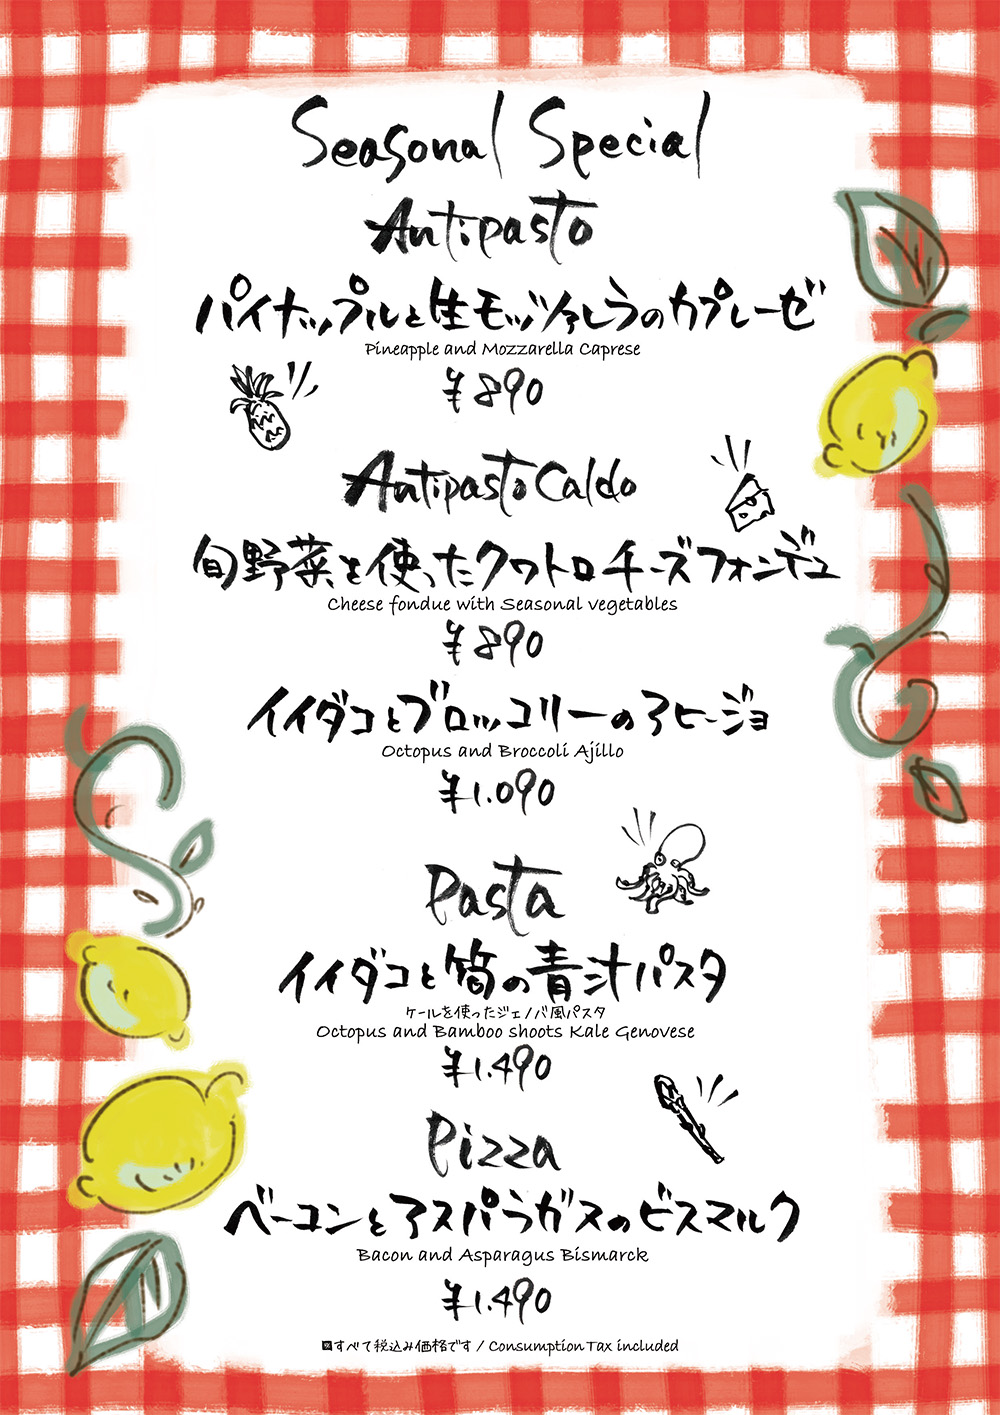 Seasonal Special
Antipasto
パイナップルと生モッツァレラのカプレーゼ
Pineapple and Mozzarella Caprese
¥890
Antipasto Caldo
旬野菜を使ったクワトロチーズフォンデュ
Cheese fondue with Seasonal vegetables
¥890
イイダコとブロッコリーのアヒージョ
Octopus and Broccoli Ajillo
¥1.090
Pasta
イイダコと筍の青汁パスタ
ケールを使ったジェノバ風パスタ
Octopus and Bamboo shoots Kale Genovese
¥1.490
Pizza
ベーコンとアスパラガスのビスマルク
Bacon and Asparagus Bismarck
¥1.490
すべて税込み価格です / Consumption Tax included